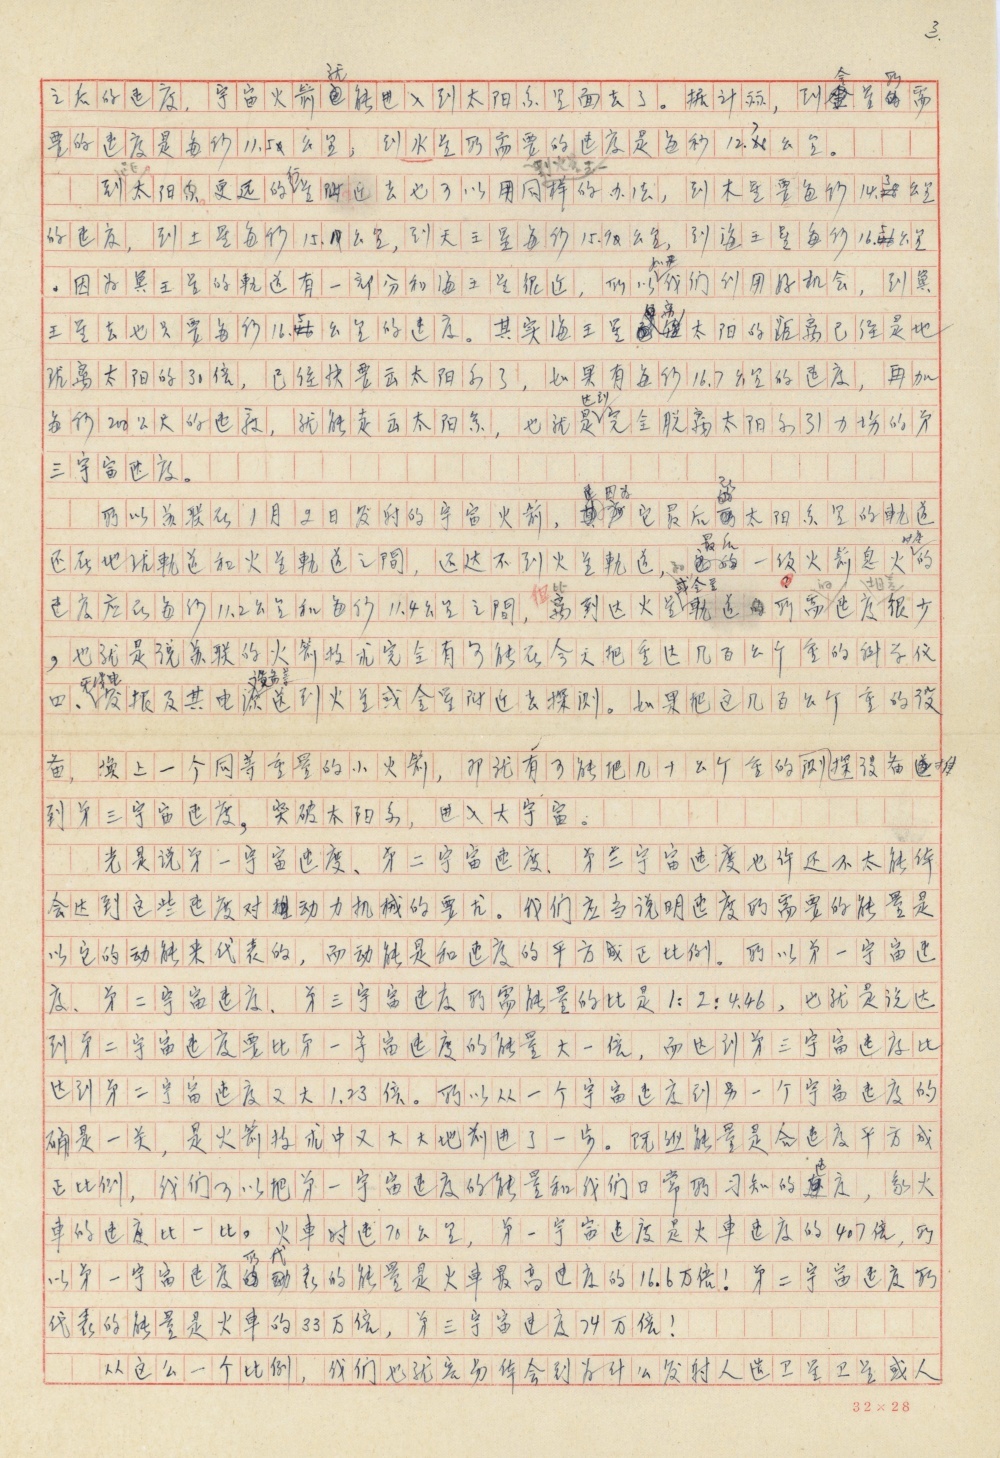 3.
之后的速度，宇宙火箭就能进入到太阳系里面去了。据计标，到金星所需
要的速度是每秒11.5公里；到水星所需要的速度是每秒12.7公里。
到太阳系更远的行星附近去也可以用同样的办法，到木星要每秒14.公里
的速度，到土星每秒15.公里，到天王星每秒15.9公里，到海王星每秒16.公里
。因为冥王星的轨道有一部分和海王星很近，所以如果我们利用好机会，到冥
王星去也只要每秒16.公里的速度。其实海王星离太阳的距离已经是地
球离太阳的30倍，已经快要出太阳系了，如果有每秒16.7公里的速度，再加
每秒200公尺的速度，就能走出太阳系，也就是达到完全脱离太阳系引力场的第
三宇宙速度。
所以苏联在1月2日发射的宇宙火箭，因为它最后在太阳系里的轨道
还在地球轨道和火星轨道之间，还达不到火星轨道，最后的一级火箭息火时的
速度应在每秒11.2公里和每秒11.4公里之间，但比到达火星或金星轨道所需的速度相差很少
，也就是说苏联的火箭技术完全有可能在今天把重达几百公斤重的科学仪
四、无线电发报及其电源设备等送到火星或金星附近去探测。如果把这几百公斤重的设
备，换上一个同等重量的小火箭，那就有可能把几十公斤重的探测设备推
到第三宇宙速度，突破太阳系，进入大宇宙。
光是说第一宇宙速度、第二宇宙速度、第三宇宙速度也许还不太能体
会达到这些速度对推动力机械的要求。我们应当说明速度所需要的能量是
以它的动能来代表的，而动能是和速度的平方成正比例。所以第一宇宙速
度、第二宇宙速度、第三宇宙速度所需能量的比是1：2：4.46，也就是说达
到第二宇宙速度要比第一宇宙速度的能量大一倍，而达到第三宇宙速度比
达到第二宇宙速度又大1.23倍。所以从一个宇宙速度到另一个宇宙速度的
确是一关，是火箭技术中又大大地前进了一步。既然能量是合速度平方成
正比例，我们可以把第一宇宙速度的能量和我们日常所习知的速度，象火
车的速度比一比。火车时速70公里，第一宇宙速度是火车速度的407倍，所
以第一宇宙速度所代表的能量是火车最高速度的16.6万倍！第二宇宙速度所
代表的能量是火车的33万倍，第三宇宙速度74万倍！
从这么一个比例，我们也就容易体会到为什么发射人造卫星卫星或人
32×28